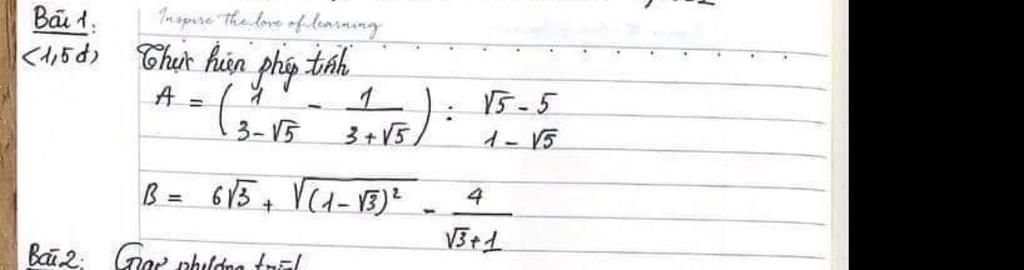 Bài 1:
Inspire The love of learning
(1,5đ) Thực hiện phép tính
A = (1/(3-√5) - 1/(3+√5)) : (√5 - 5)/(1 - √5)
B = 6√3 + √((1-√3)²) - 4/(√3+1)
Bài 2: Giải phương trình